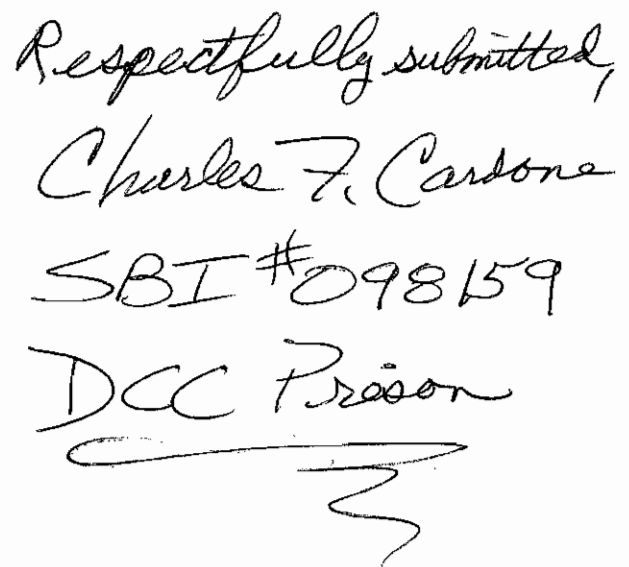 Respectfully submitted,
Charles F. Cardone
SBI #098159
DCC Prison